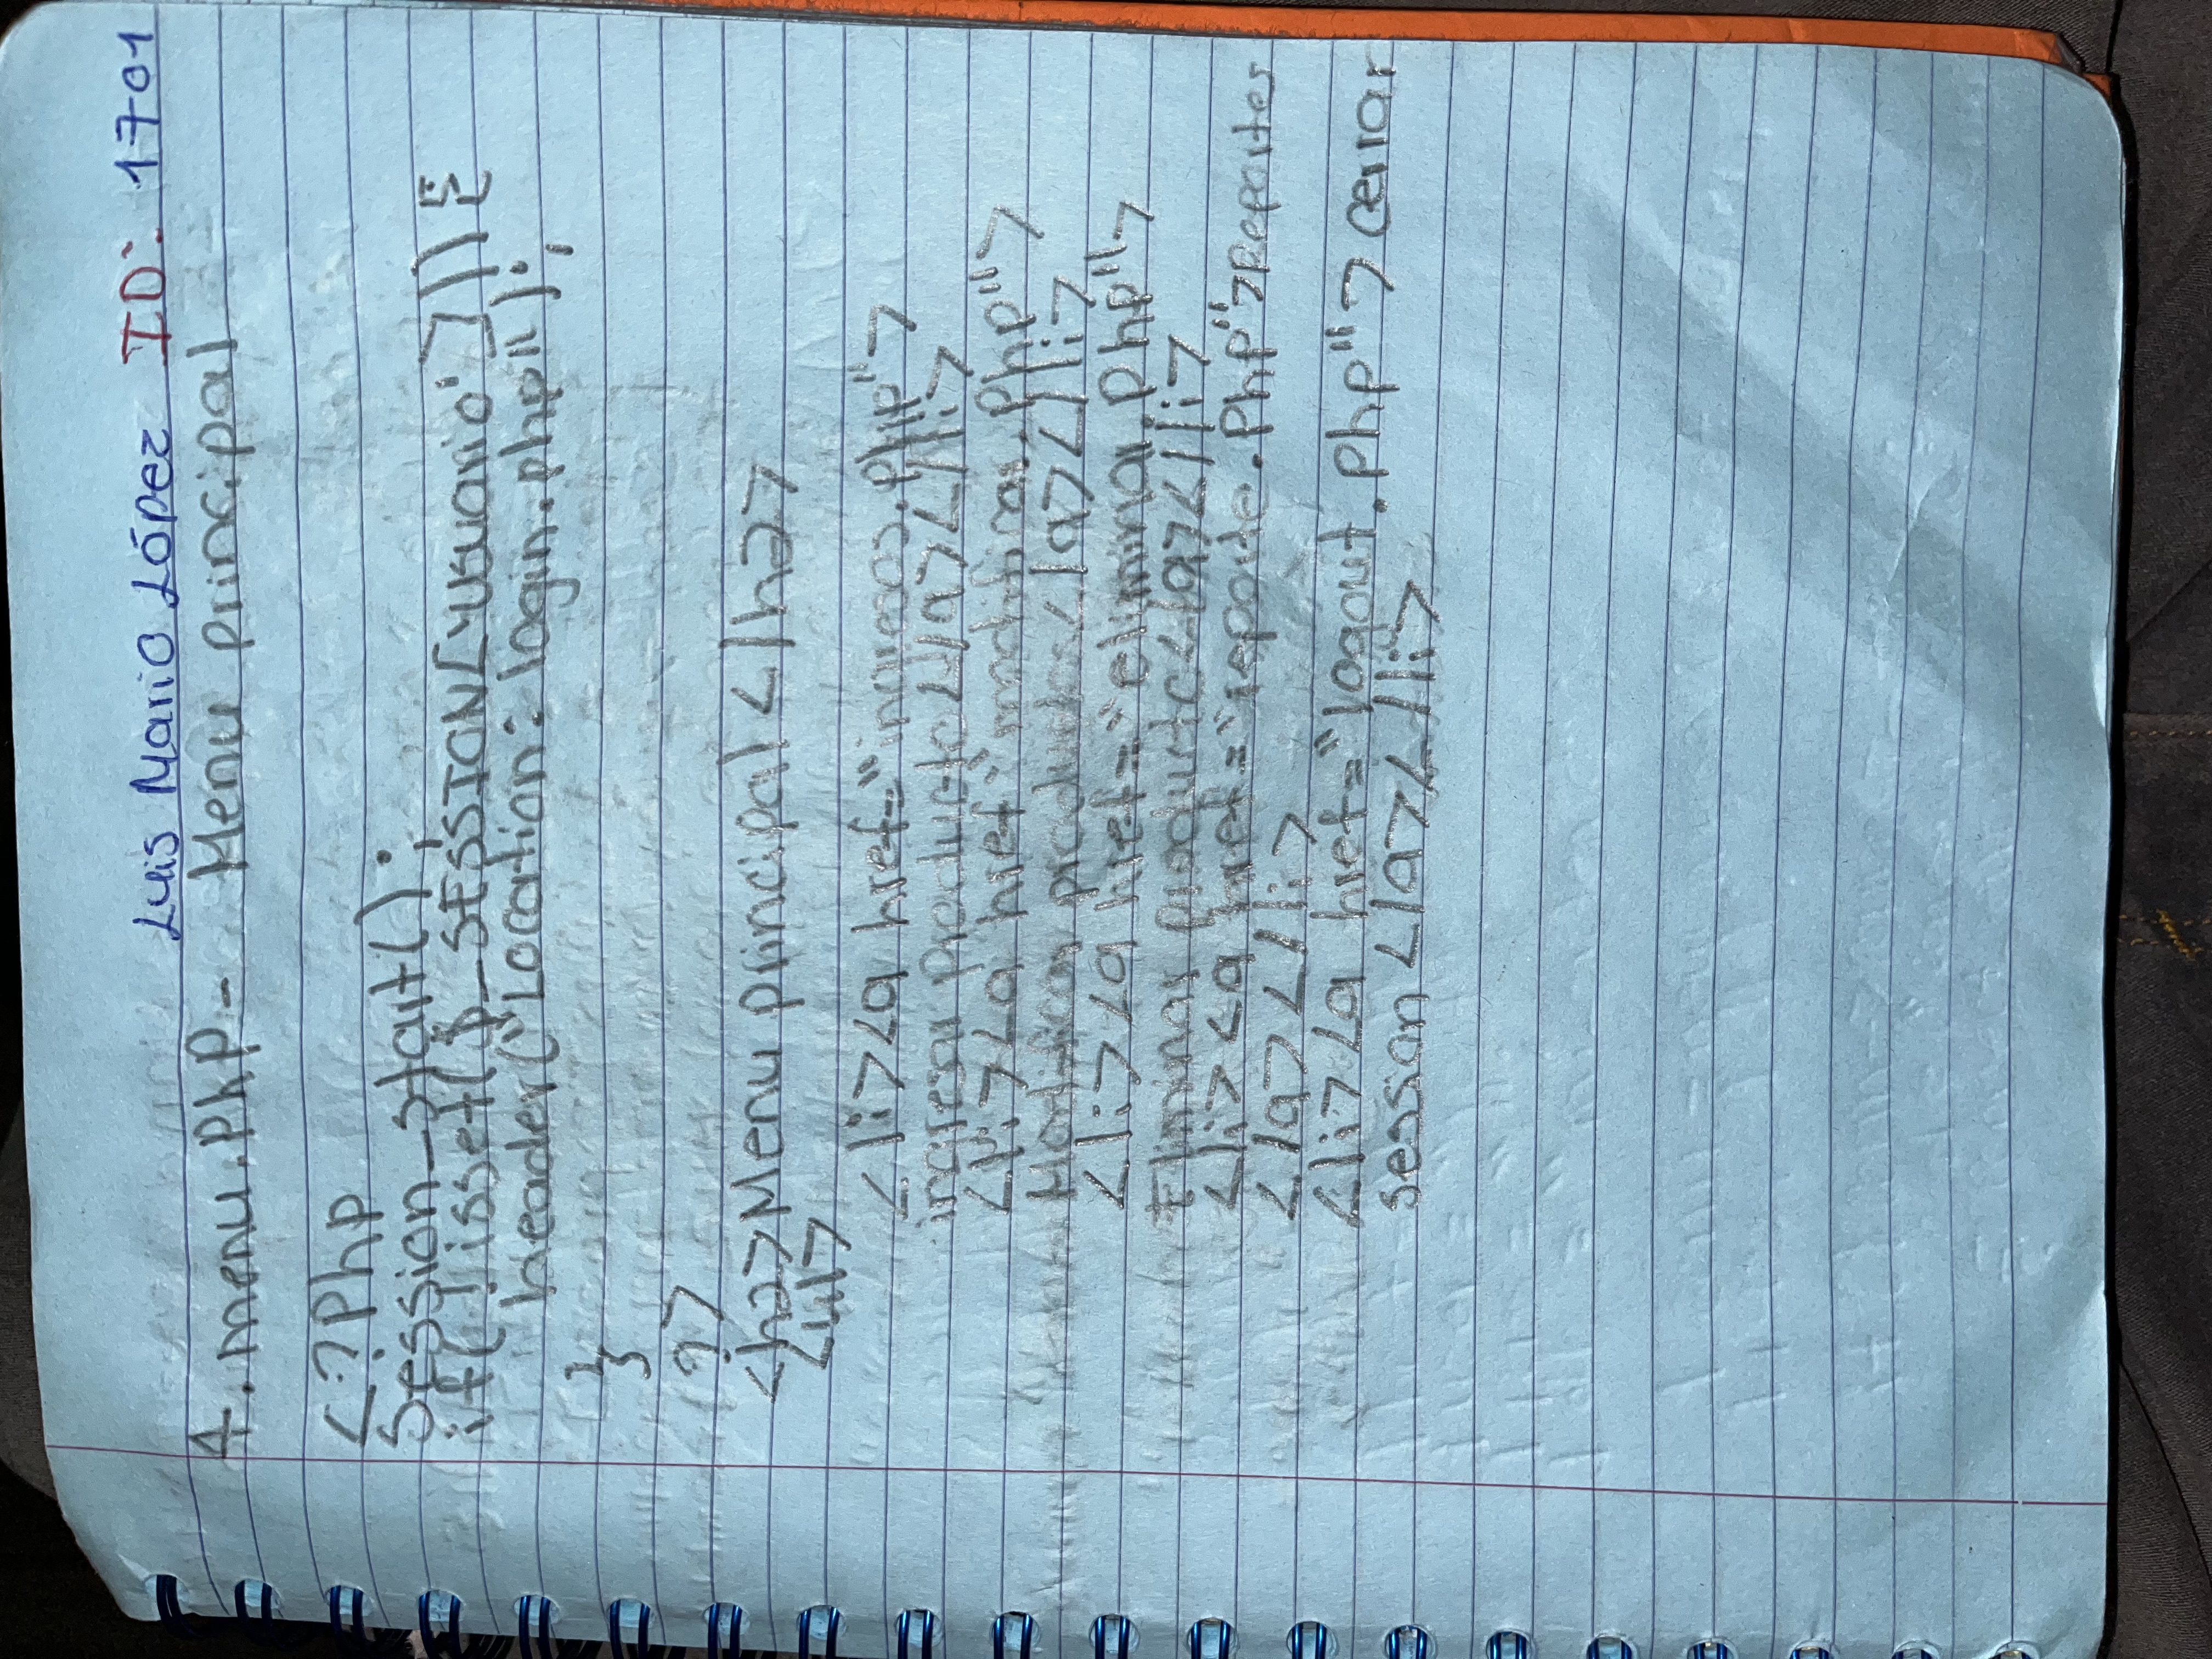 Luis Mario López ID: 1701
4. menu.PhP - Menu principal
<?Php
Session_start();
if(!isset($_SESSION['usuario'])){
header("Location: login.php");
}
?>
<h2>Menu principal</h2>
<ul>
<li><a href="ingreso.php">
ingresar producto</a></li>
<li><a href"modificar.php">
Modificar producto</a></li>
<li><a href="eliminar.php">
Eliminar producto</a></li>
<li><a href="reporte.PhP">Reportes
</a></li>
<li><a href="logout.php">cerrar
session</a></li>